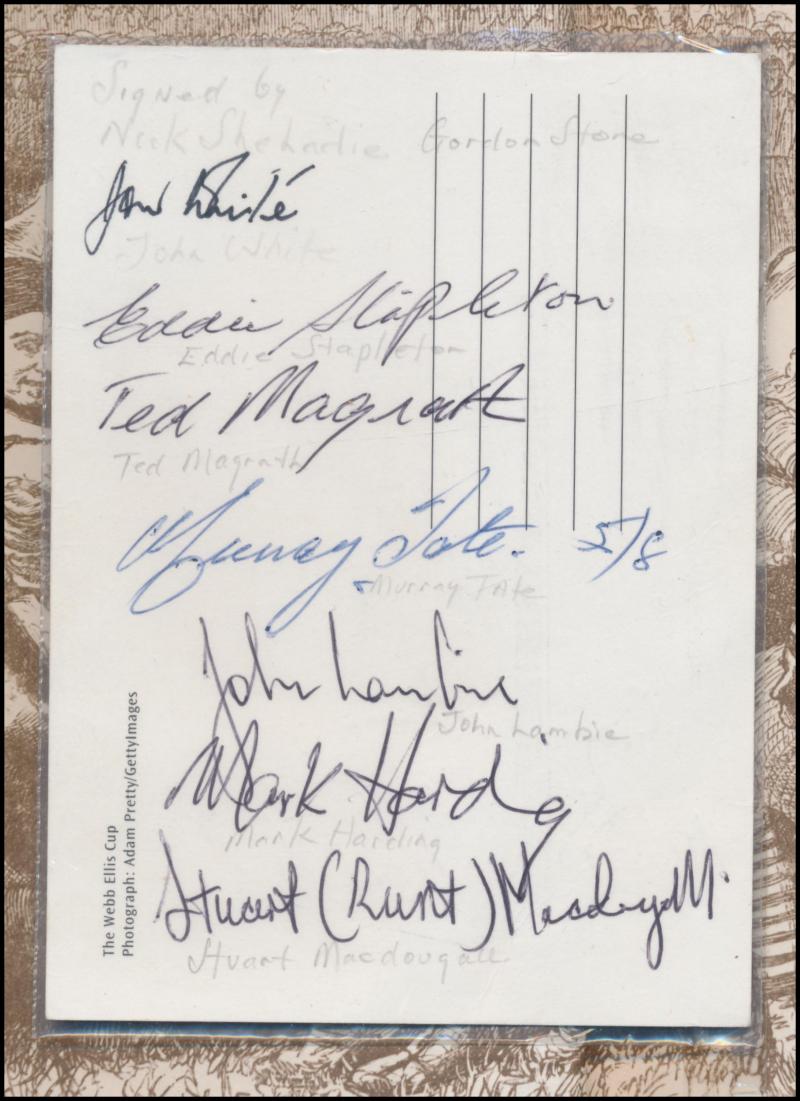 Signed by
Nick Shehadie Gordon Stone
John White
John White
Eddie Stapleton
Eddie Stapleton
Ted Magrath
Ted Magrath
Murray Tate. 5/8
Murray Tate
John Lambie
John Lambie
Mark Harding
Mark Harding
Stuart (Runt) Macdougall.
Stuart Macdougall
The Webb Ellis Cup
Photograph: Adam Pretty/GettyImages